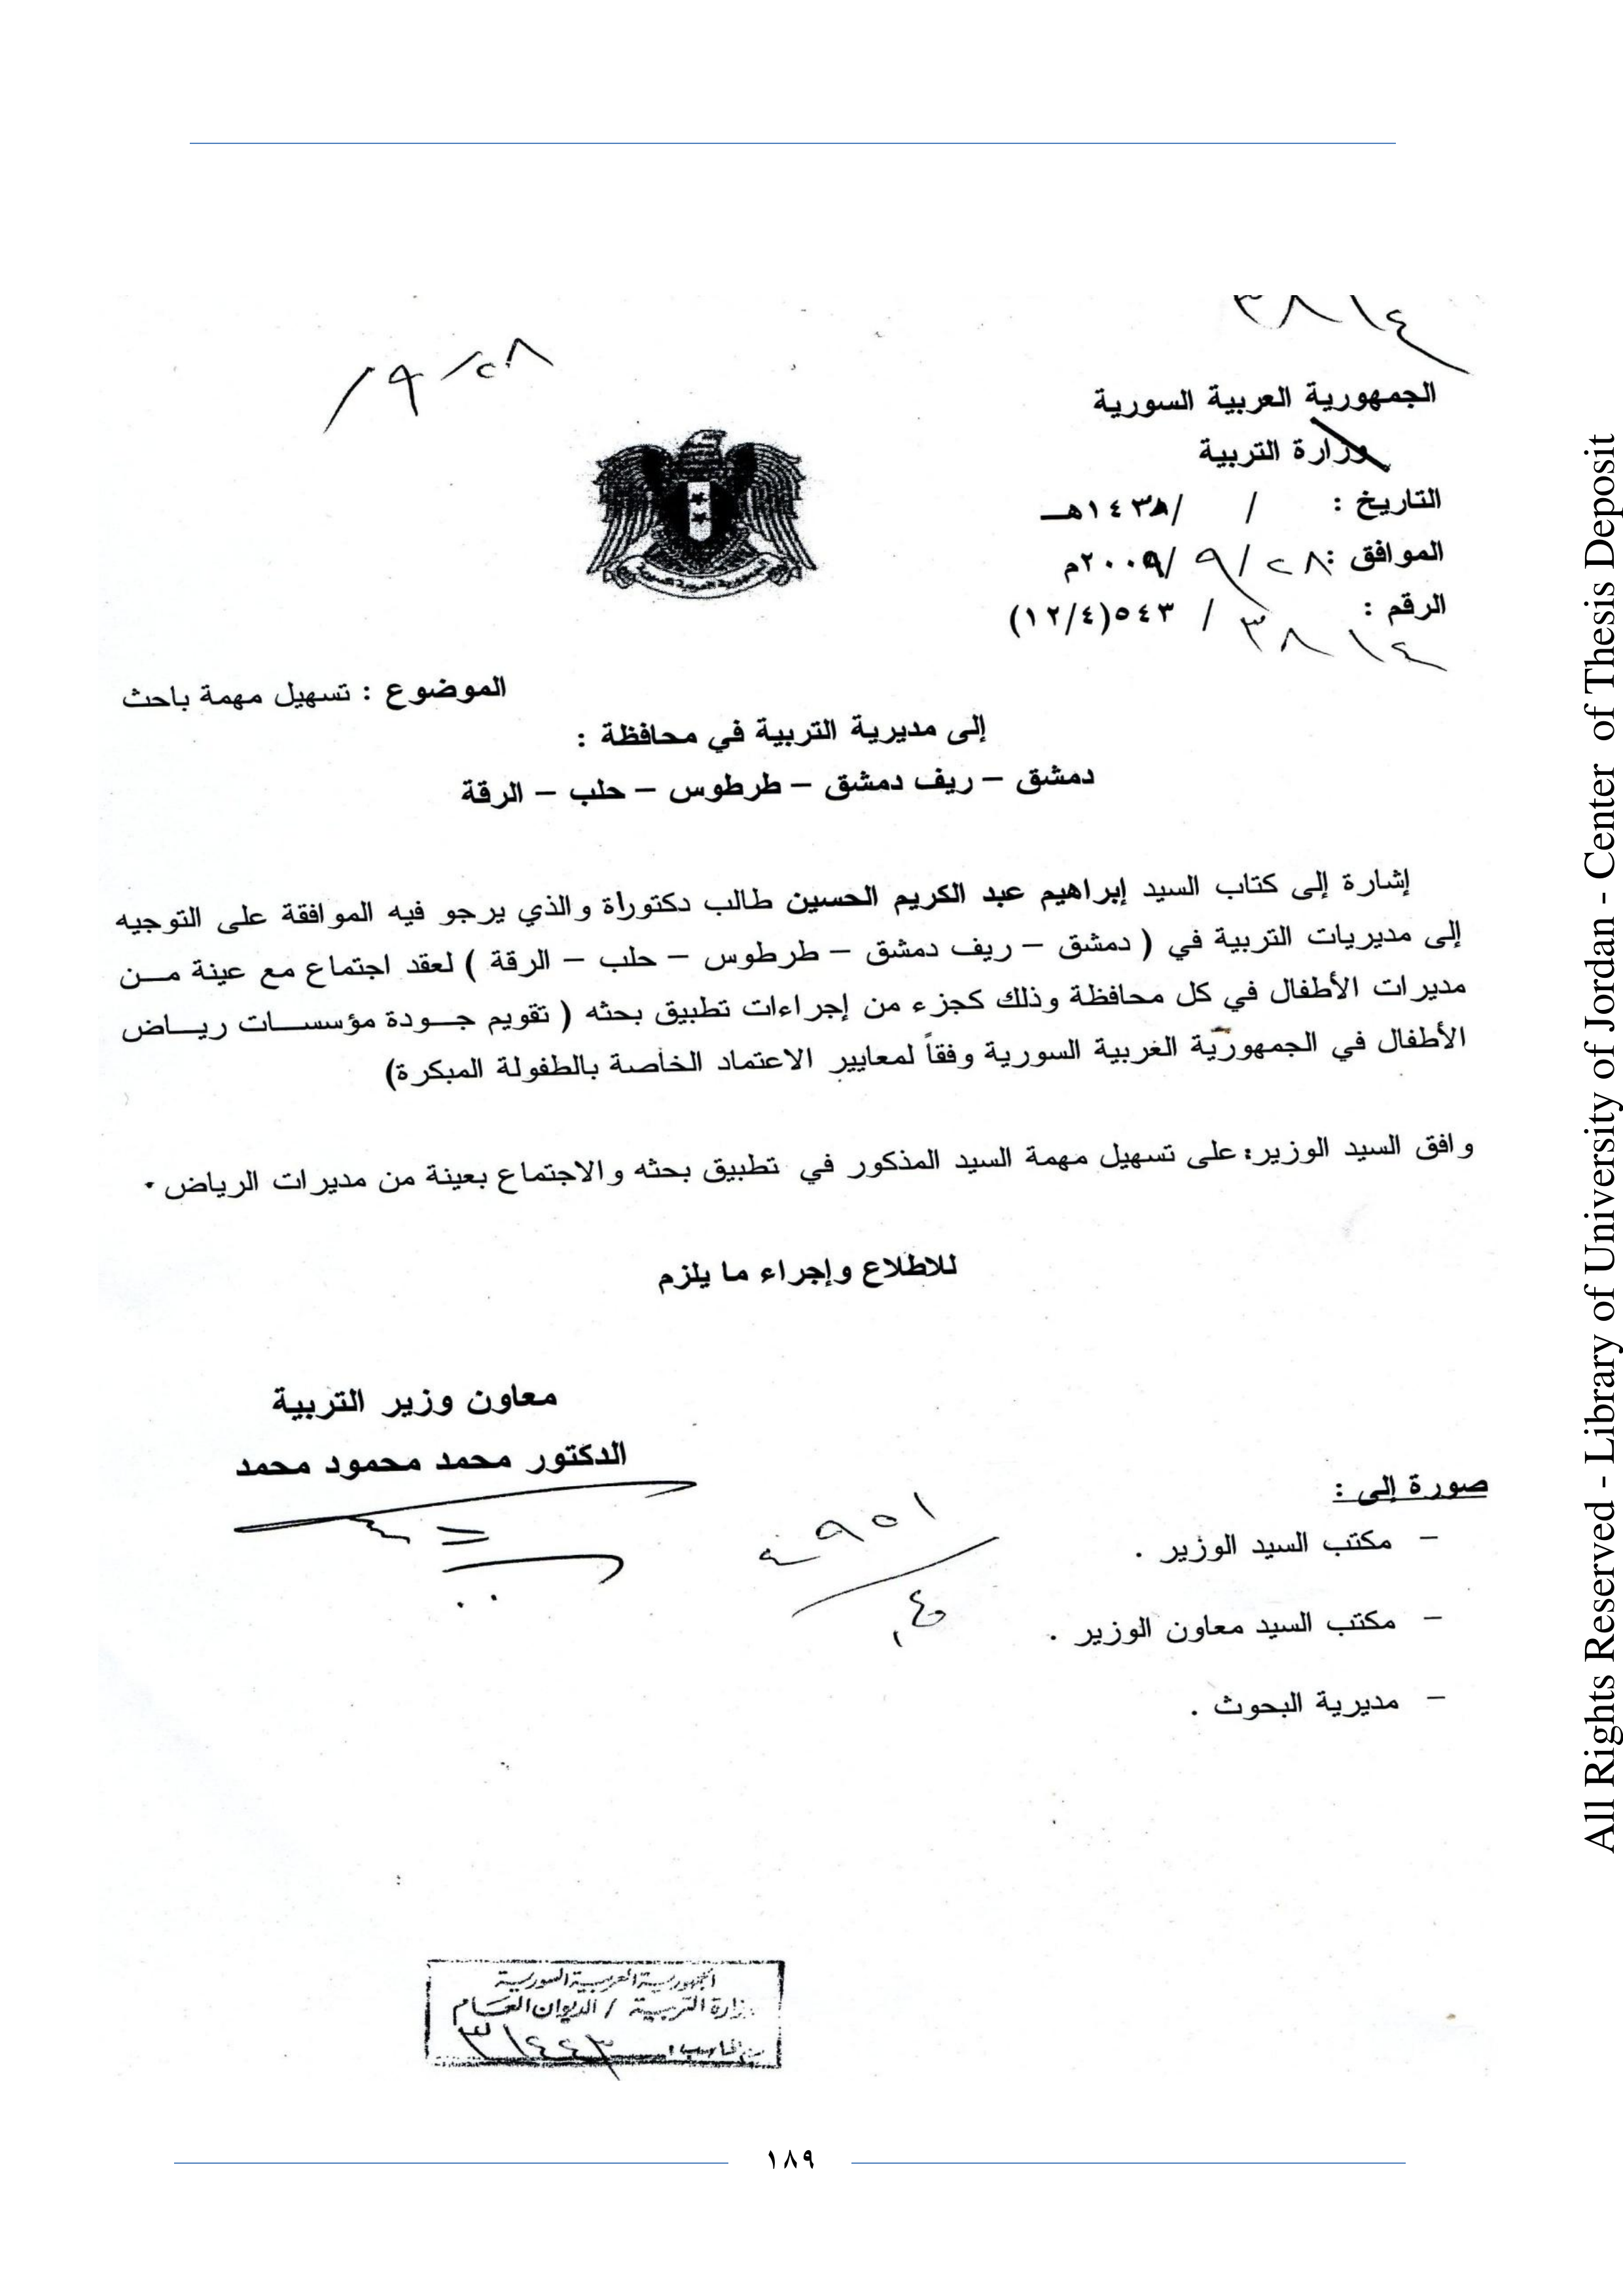 ٣٨١٤
٩/٢٨
الجمهورية العربية السورية
وزارة التربية
التاريخ : / /١٤٣٨هـ
الموافق : ٢٨/ ٩ /٢٠٠٩م
الرقم : ٣٨١٤ / ٥٤٣(١٢/٤)
الموضوع : تسهيل مهمة باحث
إلى مديرية التربية في محافظة :
دمشق – ريف دمشق – طرطوس – حلب – الرقة
إشارة إلى كتاب السيد إبراهيم عبد الكريم الحسين طالب دكتوراة والذي يرجو فيه الموافقة على التوجيه
إلى مديريات التربية في ( دمشق – ريف دمشق – طرطوس – حلب – الرقة ) لعقد اجتماع مع عينة مــن
مديرات الأطفال في كل محافظة وذلك كجزء من إجراءات تطبيق بحثه ( تقويم جــودة مؤسســات ريــاض
الأطفال في الجمهورية العربية السورية وفقاً لمعايير الاعتماد الخاصة بالطفولة المبكرة)
وافق السيد الوزير: على تسهيل مهمة السيد المذكور في تطبيق بحثه والاجتماع بعينة من مديرات الرياض .
للاطلاع وإجراء ما يلزم
معاون وزير التربية
الدكتور محمد محمود محمد
صورة إلى :
– مكتب السيد الوزير .
– مكتب السيد معاون الوزير .
– مديرية البحوث .
الجمهورية العربية السورية
وزارة التربية / الديوان العام
١٨٩
All Rights Reserved - Library of University of Jordan - Center of Thesis Deposit